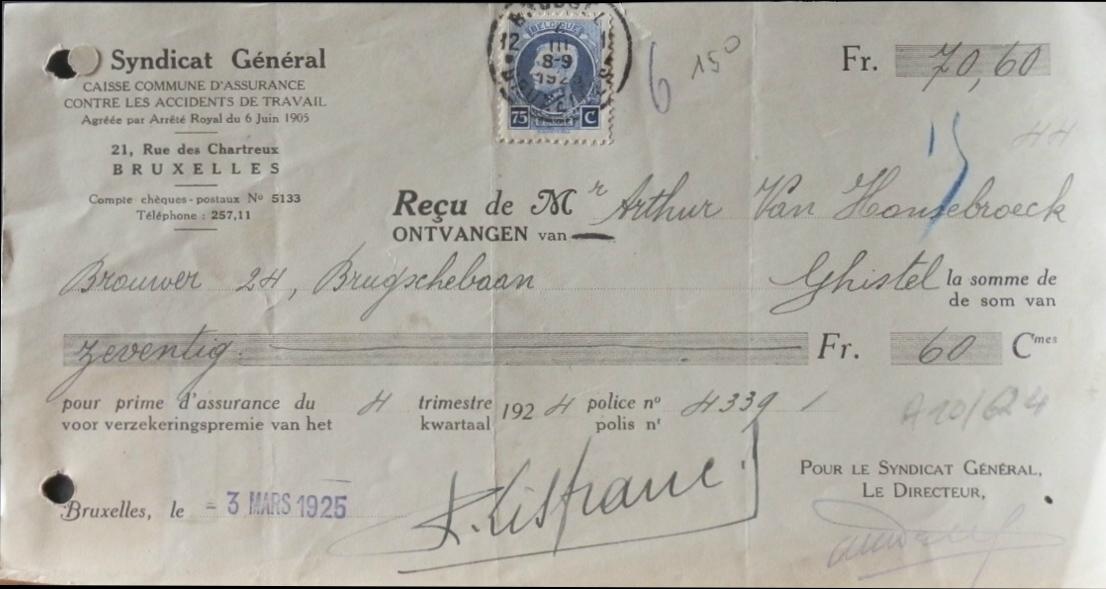 Syndicat Général
CAISSE COMMUNE D'ASSURANCE
CONTRE LES ACCIDENTS DE TRAVAIL
Agréée par Arrêté Royal du 6 Juin 1905
21, Rue des Chartreux
BRUXELLES
Compte chèques-postaux No 5133
Téléphone : 257,11
BELGIQUE
12 III
8-9
75 C
6 150
Fr. 70,60
15
44
Reçu de Mr Arthur Van Honsebroeck
ONTVANGEN van
Brouwer 24, Brugschebaan Ghistel la somme de
de som van
zeventig. Fr. 60 Cmes
pour prime d'assurance du 4 trimestre 1924 police no 4339
voor verzekeringspremie van het kwartaal polis nr
A 10/624
POUR LE SYNDICAT GÉNÉRAL,
LE DIRECTEUR,
Bruxelles, le - 3 MARS 1925